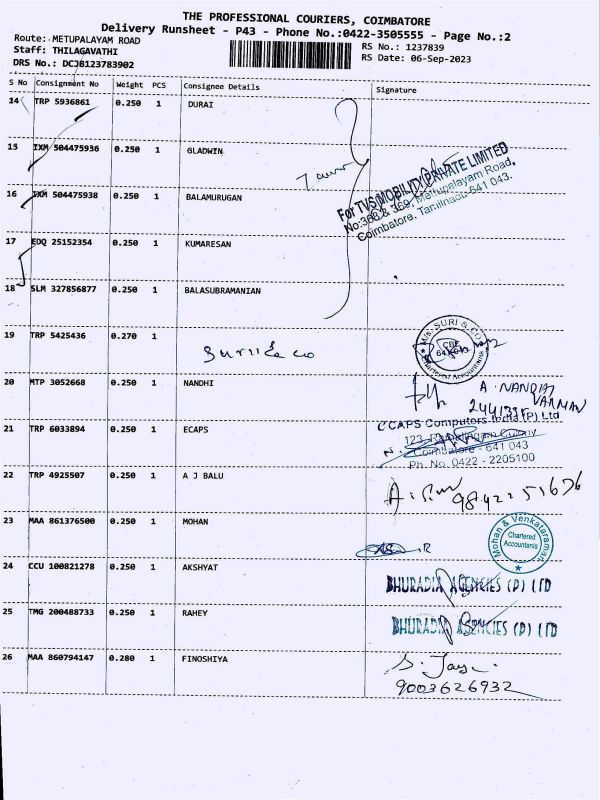 THE PROFESSIONAL COURIERS, COIMBATORE
Delivery Runsheet - P43 - Phone No.:0422-3505555 - Page No.:2
Route:- METUPALAYAM ROAD
RS No.: 1237839
Staff: THILAGAVATHI
RS Date: 06-Sep-2023
DRS No.: DCJB123783902
S No Consignment No Weight PCS Consignee Details Signature
14 TRP 5936861 0.250 1 DURAI
15 IXM 504475936 0.250 1 GLADWIN
For TVS MOBILITY PRIVATE LIMITED
No:368 & 369, Mettupalayam Road,
Coimbatore, Tamilnadu-641 043.
16 IXM 504475938 0.250 1 BALAMURUGAN
17 EDQ 25152354 0.250 1 KUMARESAN
18 SLM 327856877 0.250 1 BALASUBRAMANIAN
19 TRP 5425436 0.270 1 Suri & co
M/s. SURI & CO
CBE
Chartered Accountants
20 MTP 3052668 0.250 1 NANDHI
A. NANDHA
VARMAN
21 TRP 6033894 0.250 1 ECAPS
ECAPS Computers India (P) Ltd
Coimbatore - 641 043
Ph. No. 0422 - 2205100
22 TRP 4925507 0.250 1 A J BALU
23 MAA 861376500 0.250 1 MOHAN
Mohan & Venkataraman
Chartered
Accountants
24 CCU 100821278 0.250 1 AKSHYAT
BHURADIA AGENCIES (P) LTD
25 TMG 200488733 0.250 1 RAHEY
BHURADIA AGENCIES (P) LTD
26 MAA 860794147 0.280 1 FINOSHIYA
9003626932